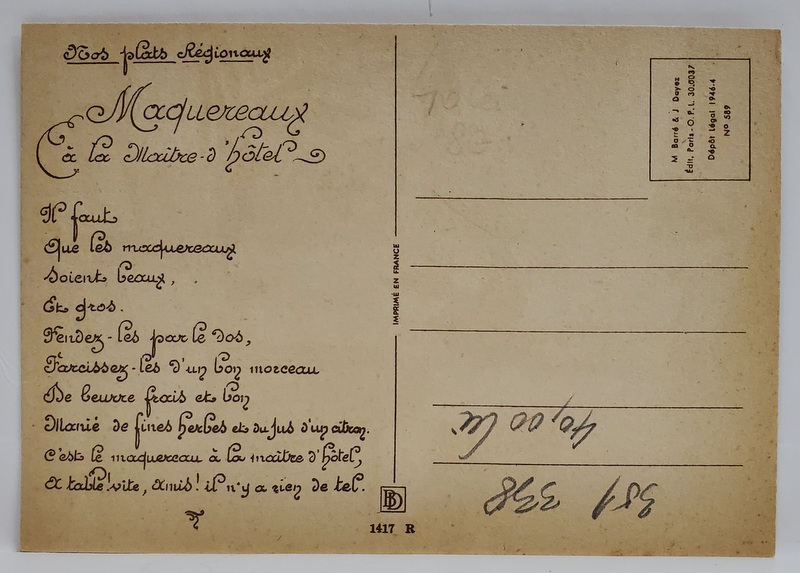 Nos plats Régionaux
Maquereaux
à la Maître-d'hôtel
Il faut
Que les maquereaux
Soient beaux,
Et gros.
Fendez-les par le dos,
Farcissez-les d'un bon morceau
De beurre frais et bon
Manié de fines herbes et du jus d'un citron.
C'est le maquereau à la maître d'hôtel,
A table! vite, Amis! il n'y a rien de tel.
IMPRIMÉ EN FRANCE
BD
1417 R
M Barré & J Dayez
Édit, Paris-O.P.L. 30.0037
Dépôt Légal 1946-4
No 589
70 lei
40,00 lei
381 338